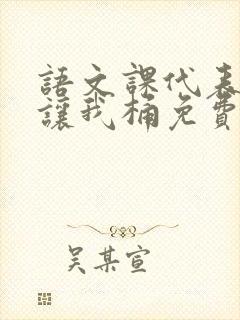 語文課代表
讓我桶免費
吳某宣